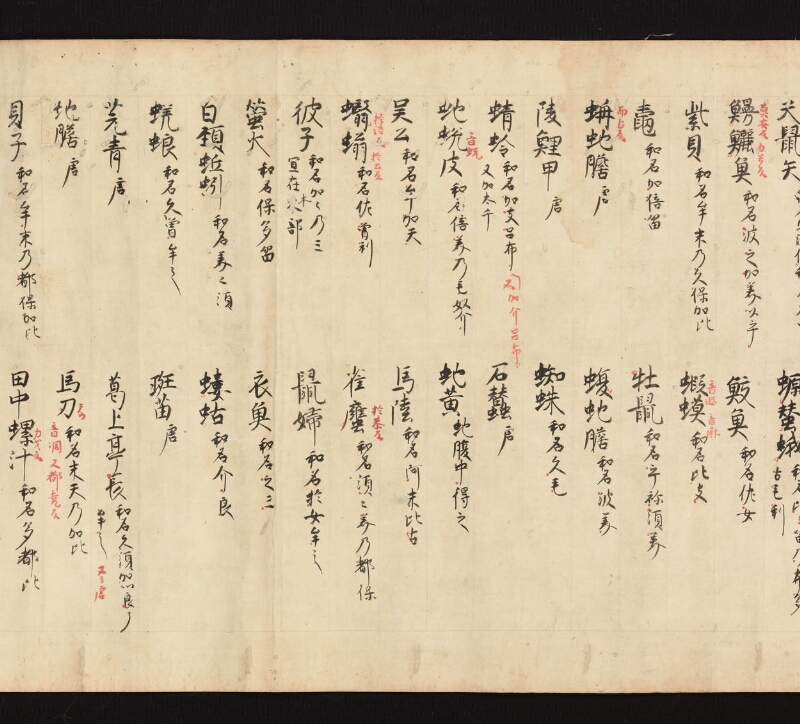 天鼠矢
蠶蛾
鰻鱺魚 和名波之加美以乎
鮫魚 和名佐女
紫貝 和名牟末乃久保加比
蝦蟆 和名比支 音遐 音麻
和名加倍留
牡鼠 和名乎祢須美
蚺蛇膽 唐 而占反
蝮蛇膽 和名波美
陵鯉甲 唐
蜘蛛 和名久毛
蜻蛉 和名加支呂布 又加太千 又加介呂布
石蠶 唐
虵蛻皮 和名倍美乃毛奴介
虵黄 虵腹中得之
吴公 和名牟加天
馬陸 和名阿末比古
蠮螉 和名佐曽利
雀甕 和名須々美乃都保
彼子 和名加々乃三 宣在木部
鼠婦 和名於女牟之
螢火 和名保多留
衣魚 和名之三
白頚蚯蚓 和名美々須
螻蛄 和名介良
蜣蜋 和名久曽牟之
斑苗 唐
芫青 唐
葛上亭長 和名久須 牟之
地膽 唐
馬刀 和名末天乃加比 音凋 又都堯反
貝子 和名牟末乃都保加比
田中螺汁 和名多都比